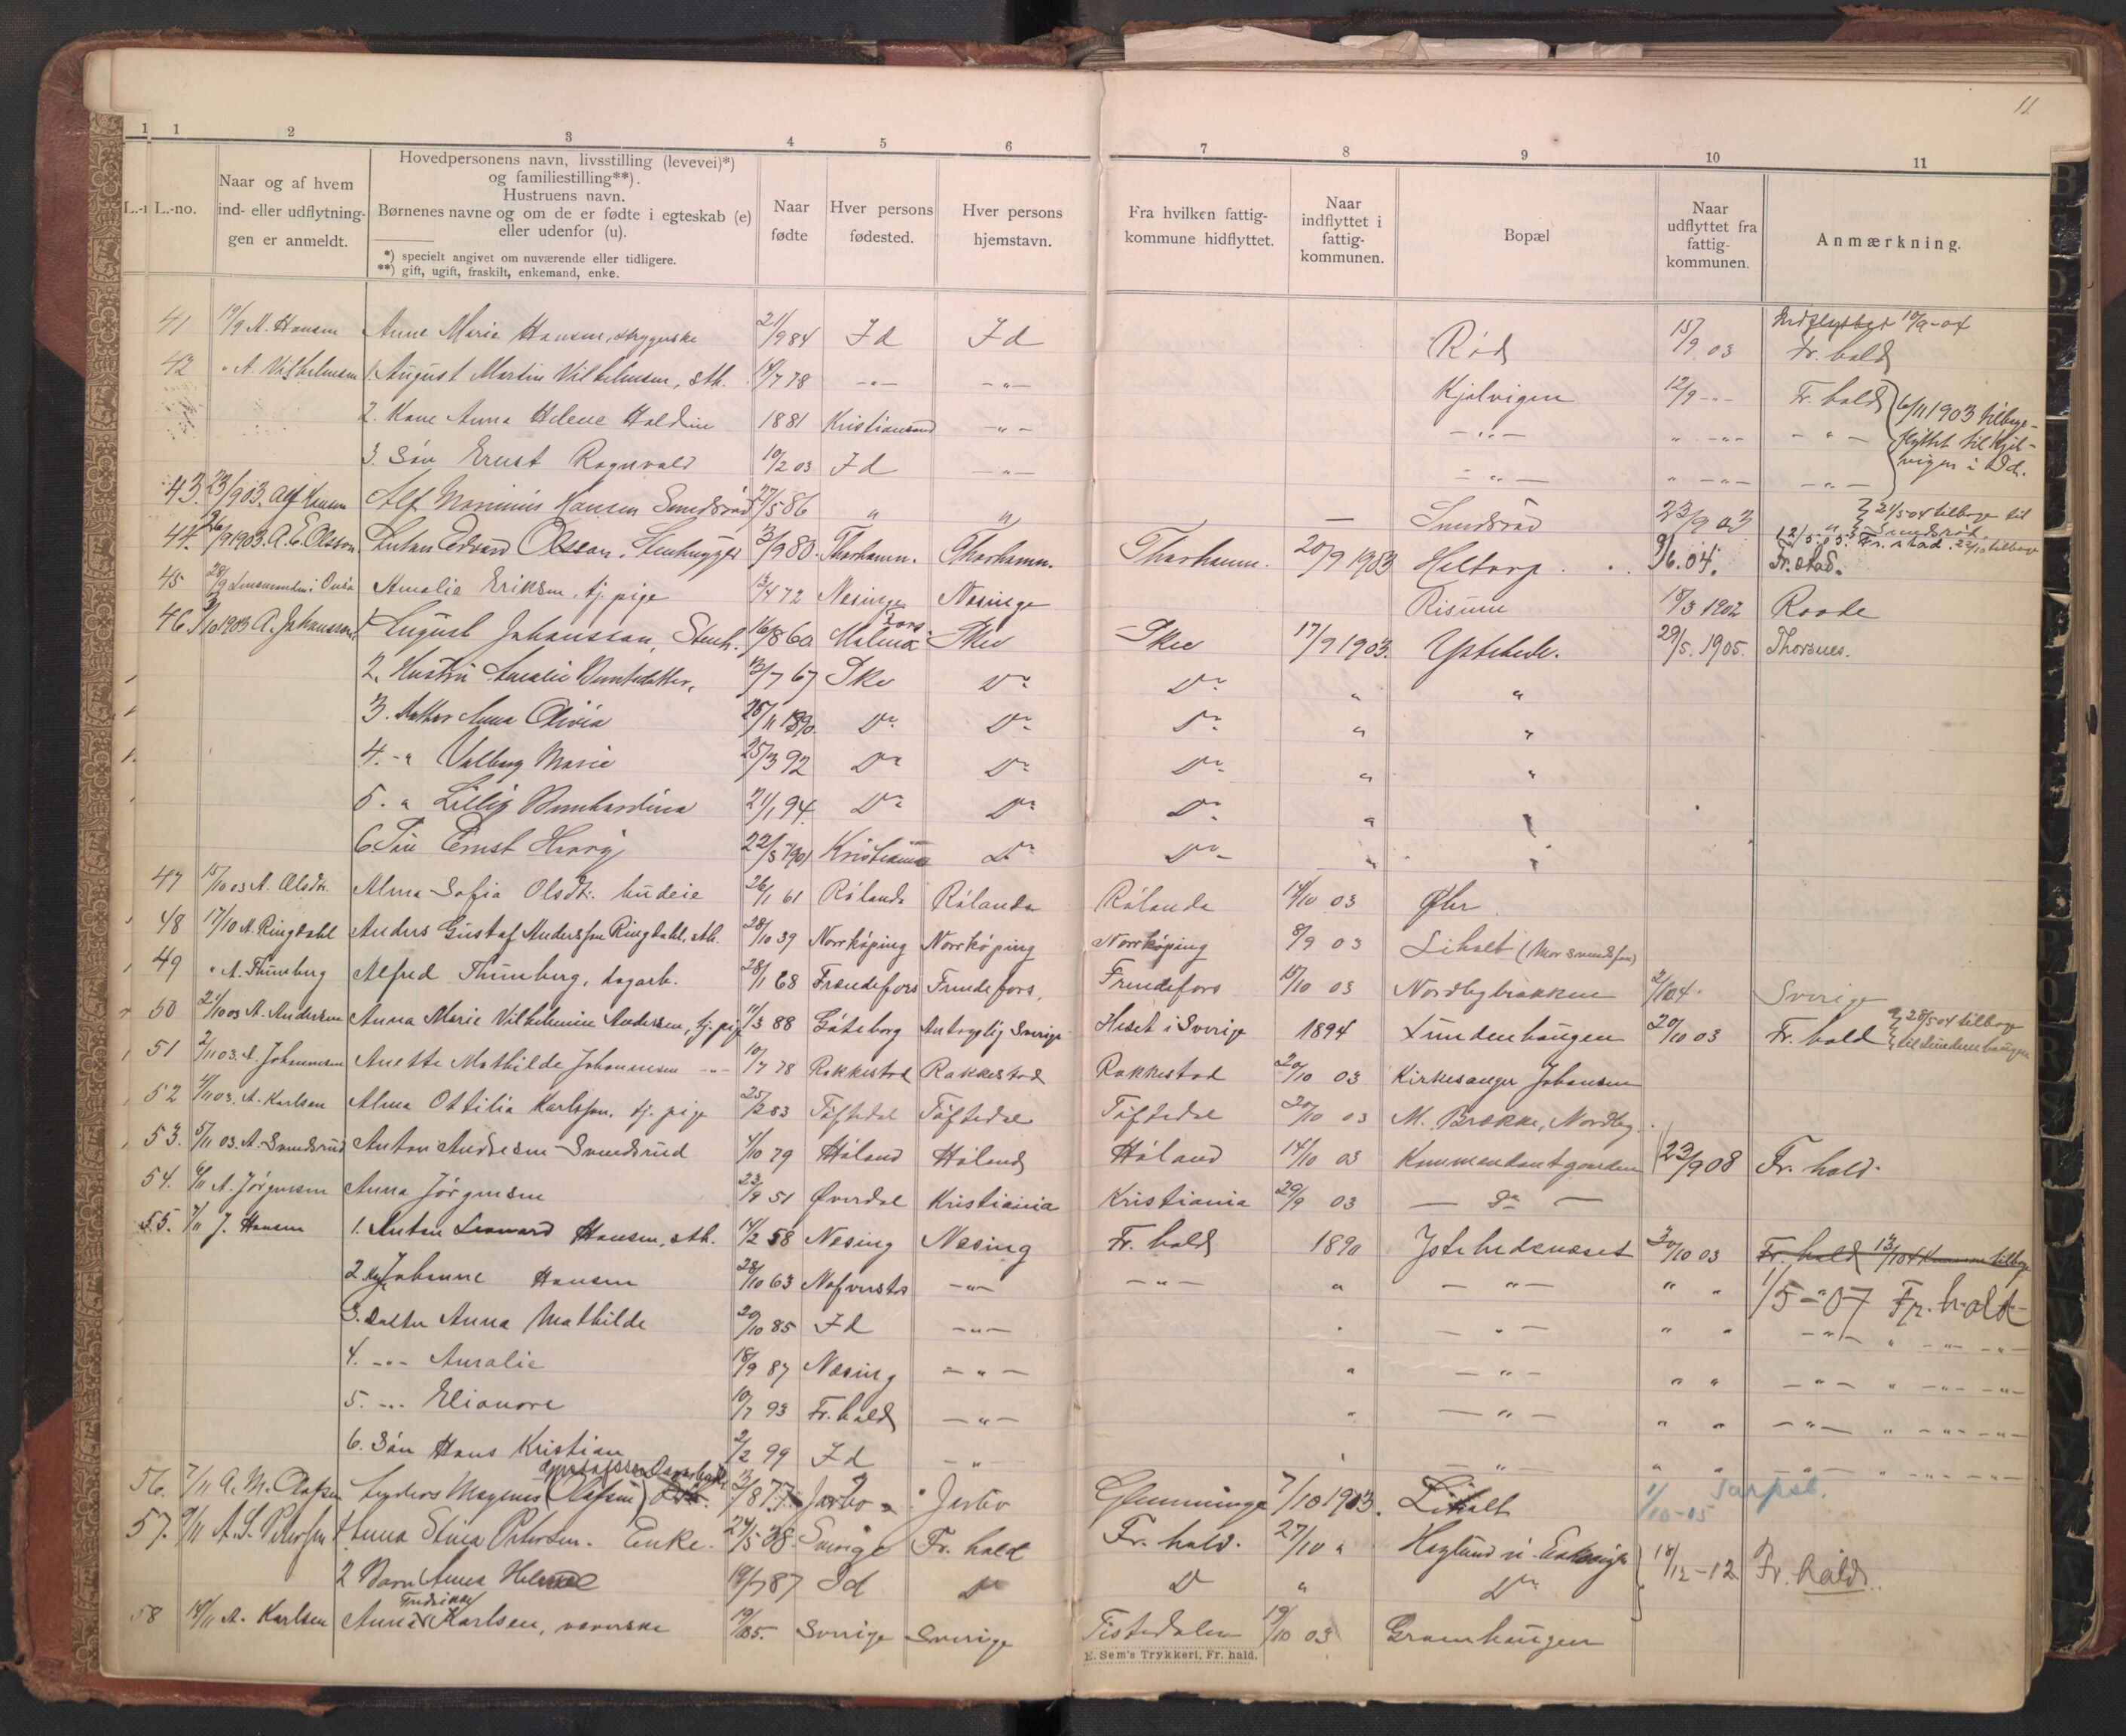 11
1 1 2 3 4 5 6 7 8 9 10 11
L.-no.
Naar og af hvem ind- eller udflytningen er anmeldt.
Hovedpersonens navn, livsstilling (levevei)*) og familiestilling**).
Hustruens navn.
Børnenes navne og om de er fødte i egteskab (e) eller udenfor (u).
*) specielt angivet om nuværende eller tidligere.
**) gift, ugift, fraskilt, enkemand, enke.
Naar fødte
Hver persons fødested.
Hver persons hjemstavn.
Fra hvilken fattigkommune hidflyttet.
Naar indflyttet i fattigkommunen.
Bopæl
Naar udflyttet fra fattigkommunen.
Anmærkning.
41 19/9 A. Hansen Anne Marie Hansen, strygerske 21/9 84 Id Id Rød 15/9 03 Indflyttet 10/9-04 Fr. hald
42 " A. Vilhelmsen 1. August Martin Vilhelmsen, sth. 14/7 78 -"- -"- Kjølvigen 12/9 -"- Fr. hald 6/11 1903 tilbage-
2. Kone Anna Helene Haldine 1881 Kristiansand -"- -"- " -"- -"- flyttet til Kjøl-
3. Søn Ernst Ragnvald 10/2 03 Id -"- -"- " -"- -"- vigen i Id.
43. 23/9 03. Alf Hansen Alf Marinius Hansen Smedsrød 27/5 86 " " — Smedsrød 23/9 03 21/5 04 tilbage til Smedsrød.
44. 26/9 1903. A. E. Olsson Edvard Olsson, Stenhugger 3/9 80. Tharhamn. Tharhamn. Tharhamn. 20/9 1903 Heltorp 9/6. 04. Fr. stad. 12/5-05 Fr. stad. 22/10 tilbage
45 28/9 Lensmanden i Onsø Amalie Eriksen, tj. pige 13/4 72 Næsinge Næsinge Risum 15/3 1902 Raade
46. 3/10 1903 A. Johansson 1. August Johansson, Stenh. 16/8 60 Malmø Skee Skee 17/9 1903. Ystehede. 29/5. 1905. Thorsnes.
2. Hustru Amalie 13/7 67 Ske Do Do " "
3. Datter Anna Olivia 25/11 1890. Do Do Do " "
4. -" Valborg Marie 25/3 92 Do Do Do " "
5. " Lilly Bernhardina 21/1 94. Do Do Do " "
6. Søn Ernst Henry 22/3 1901 Kristiania Do Do " "
47 15/10 03 A. Olsdtr. Alma Sofia Olsdtr. budeie 26/1 61 Rølanda Rølanda Rølanda 14/10 03 Øhr
48 17/10 A. Ringdahl Anders Gustaf Andersson Ringdahl, sth. 28/10 39 Norrköping Norrköping Norrköping 8/9 03 Liholt (Mor Svendsen)
49 " A. Thunberg Alfred Thunberg, dagarb. 28/1 68 Frendefors Frendefors, Frendefors 15/10 03 Nordbybrækken 2/1 04. Sverige
50 21/10 03 A. Andersen Anna Marie Vilhelmine Andersen, tj. pige 11/3 88 Göteborg Antagelig Sverige Heset i Sverige 1894 Lundenhaugen 20/10 03 Fr. hald 28/5 04 tilbage til Lundenhaugen
51 2/11 03. A. Johannesen Anette Mathilde Johannesen -"- 10/7 78 Rakkestad Rakkestad Rakkestad 20/10 03 Kirkesanger Johansen
52 4/11 03. A. Karlsen Alma Ottilia Karlsson, tj. pige 25/2 83 Töftedal Töftedal Töftedal 20/10 03 M. Brække, Nordby.
53. 5/11 03. A. Svendsrud Anton Andresen Svendsrud 4/10 79 Høland Høland Høland 14/10 03 Kommendantgaarden 23/9 08 Fr. hald.
54. 6/11 A. Jørgensen Anna Jørgensen 23/9 51 Øverdal Kristiania Kristiania 29/9 03 — Do —
55. 7/11 J. Hansen 1. Anton Leonard Hansen, sth. 14/2 58 Næsing Næsing Fr. hald 1890 Ystehedsnæset 30/10 03 Fr. hald 13/1 04 Kommen tilbage
2. Johanne Hansen 28/10 63 Nafverstad -"- -"- " -"- " " 1/5-07 Fr. hald
3. datter Anna Mathilde 20/10 85 Id -"- " -"- " " -"- " -"- -"-
4. -"- Auralie 18/9 87 Næsing -"- " -"- " " -"- " -"- -"-
5. -"- Elianore 10/7 93 Fr. hald -"- " -"- " " -"- " -"- -"-
6. Søn Hans Kristian 2/2 99 Id -"- " -"- " " -"- " -"- -"-
56. 7/11 A. M. Olafsen Anders Magnus (Olafsen) 13/8 77 Jerbo Jerbo Glemminge 7/10 1903. Liholt 1/10-05 Sarpsb.
57. 9/11 A. S. Petersen 1. Anna Stina Petersen. Enke. 24/5 38. Sverige Fr. hald Fr. hald. 27/10 " Høglund v. 18/12-12 Fr. hald.
2 Barn Anna 19/7 87 Id Do D " Do
58 14/11 A. Karlsen Anna Fredrikke Karlsen, væverske 19/ 85. Sverige Sverige Tistedalen 19/10 03 Granhaugen
E. Sem's Trykkeri, Fr. hald.